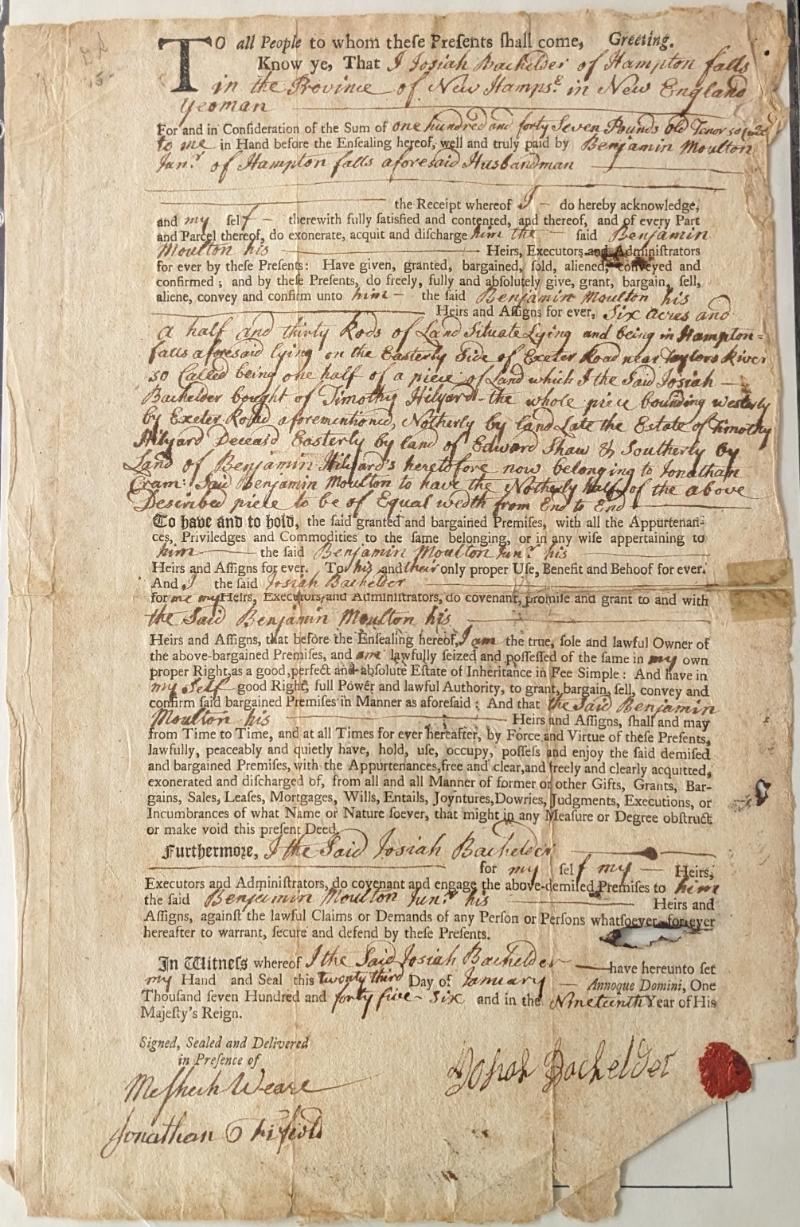 TO all People to whom theſe Preſents ſhall come, Greeting.
Know ye, That I Josiah Bachelder of Hampton falls
in the Province of New Hampsr. in New England
Yeoman
For and in Conſideration of the Sum of one hundred and forty Seven Pounds Old Tenor
to me in Hand before the Enſealing hereof, well and truly paid by Benjamin Moulton
Junr. of Hampton falls aforesaid Husbandman
the Receipt whereof I do hereby acknowledge,
and my ſelf therewith fully ſatisfied and contented, and thereof, and of every Part
and Parcel thereof, do exonerate, acquit and diſcharge him the ſaid Benjamin
Moulton his Heirs, Executors and Adminiſtrators
for ever by theſe Preſents: Have given, granted, bargained, ſold, aliened, conveyed and
confirmed; and by theſe Preſents, do freely, fully and abſolutely give, grant, bargain, ſell,
aliene, convey and confirm unto him the ſaid Benjamin Moulton his
Heirs and Aſſigns for ever, Six Acres and
a half and thirty Rods of Land Situate Lying and being in Hampton=
falls aforesaid lying on the Easterly Side of Exeter Road near Taylors River
so Called being one half of a piece of Land which I the Said Josiah
Bachelder bought of Timothy Hilyard the whole piece bounding Westerly
by Exeter Road aforementioned, Notherly by land Late the Estate of Timothy
Hilyard Deceasd Easterly by land of Edward Shaw & Southerly by
Land of Benjamin Hilyard's heretofore now belonging to Jonathan
Cram: Said Benjamin Moulton to have the Notherly half of the above
Desiribed piece to be of Equal wedth from End to End
To have and to hold, the ſaid granted and bargained Premiſes, with all the Appurtenan-
ces, Priviledges and Commodities to the ſame belonging, or in any wiſe appertaining to
him the ſaid Benjamin Moulton Junr. his
Heirs and Aſſigns for ever. To his and their only proper Uſe, Benefit and Behoof for ever.
And I the ſaid Josiah Bachelder
for me my Heirs, Executors and Adminiſtrators, do covenant, promiſe and grant to and with
the Said Benjamin Moulton his
Heirs and Aſſigns, that before the Enſealing hereof, I am the true, ſole and lawful Owner of
the above-bargained Premiſes, and am lawfully ſeized and poſſeſſed of the ſame in my own
proper Right, as a good, perfect and abſolute Eſtate of Inheritance in Fee Simple: And have in
my Self good Right, full Power and lawful Authority, to grant, bargain, ſell, convey and
confirm ſaid bargained Premiſes in Manner as aforeſaid; And that the Said Benjamin
Moulton his Heirs and Aſſigns, ſhall and may
from Time to Time, and at all Times for ever hereafter, by Force and Virtue of theſe Preſents,
lawfully, peaceably and quietly have, hold, uſe, occupy, poſſeſs and enjoy the ſaid demiſed
and bargained Premiſes, with the Appurtenances, free and clear, and freely and clearly acquitted,
exonerated and diſcharged of, from all and all Manner of former or other Gifts, Grants, Bar-
gains, Sales, Leaſes, Mortgages, Wills, Entails, Joyntures, Dowries, Judgments, Executions, or
Incumbrances of what Name or Nature ſoever, that might in any Meaſure or Degree obſtruct
or make void this preſent Deed.
Furthermore, I the Said Josiah Bachelder
for my ſelf my Heirs,
Executors and Adminiſtrators, do covenant and engage the above-demiſed Premiſes to him
the ſaid Benjamin Moulton Junr. his Heirs and
Aſſigns, againſt the lawful Claims or Demands of any Perſon or Perſons whatſoever, for ever
hereafter to warrant, ſecure and defend by theſe Preſents.
In Witneſs whereof I the Said Josiah Bachelder have hereunto ſet
my Hand and Seal this twenty third Day of January Annoque Domini, One
Thouſand ſeven Hundred and forty five-six and in the Nineteenth Year of His
Majeſty's Reign.
Signed, Sealed and Delivered
in Preſence of
Meshech Weare
Josiah Bachelder
Jonathan